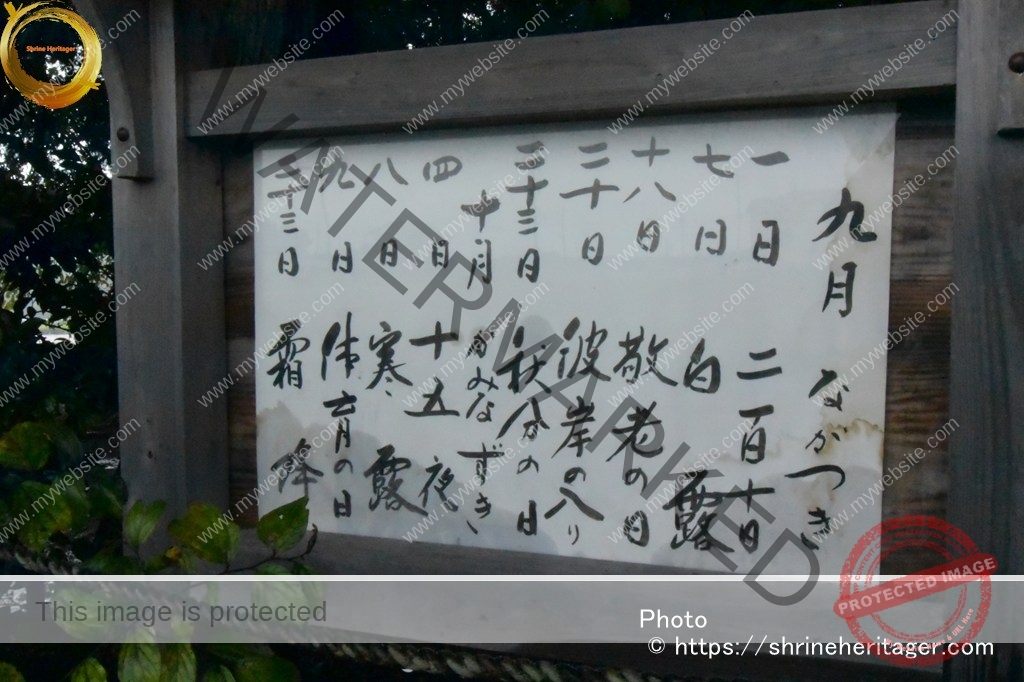 九月 ながつき
一日 二百十日
七日 白露
十八日 敬老の日
二十日 彼岸の入り
二十三日 秋分の日
十月 かみなずき
四日 十五夜
八日 寒露
九日 体育の日
二十三日 霜降
Shrine Heritager
WATERMARKED
www.mywebsite.com
PROTECTED IMAGE
This image is protected
Photo
© https://shrineheritager.com/